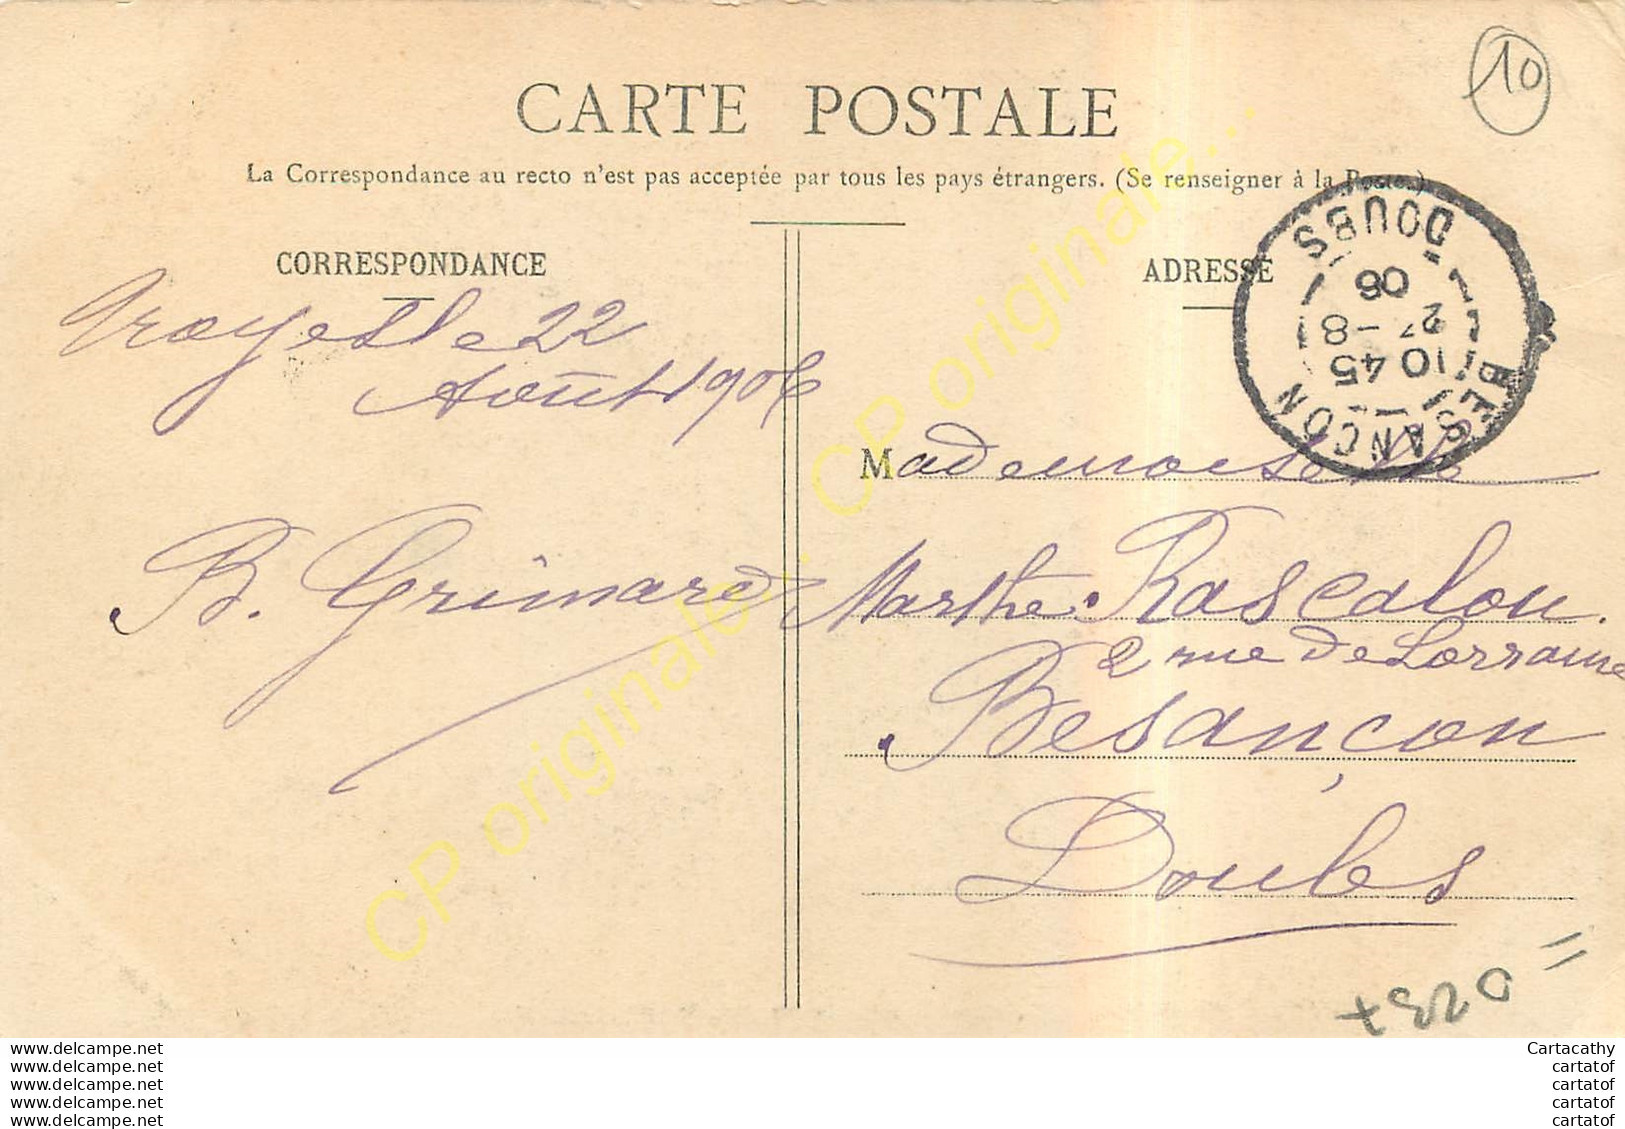 CARTE POSTALE
10
La Correspondance au recto n'est pas acceptée par tous les pays étrangers. (Se renseigner à la Poste.)
CORRESPONDANCE
ADRESSE
BESANCON
DOUBS
10 45
-8
06
Troyes le 22
Août 1906
B. Grimard
Mademoiselle
Marthe Rascalou.
2 rue de Lorraine
Besançon
Doubs
CP originale... CP originale...
www.delcampe.net
www.delcampe.net
www.delcampe.net
www.delcampe.net
www.delcampe.net
Cartacathy
cartatof
cartatof
cartatof
cartatof